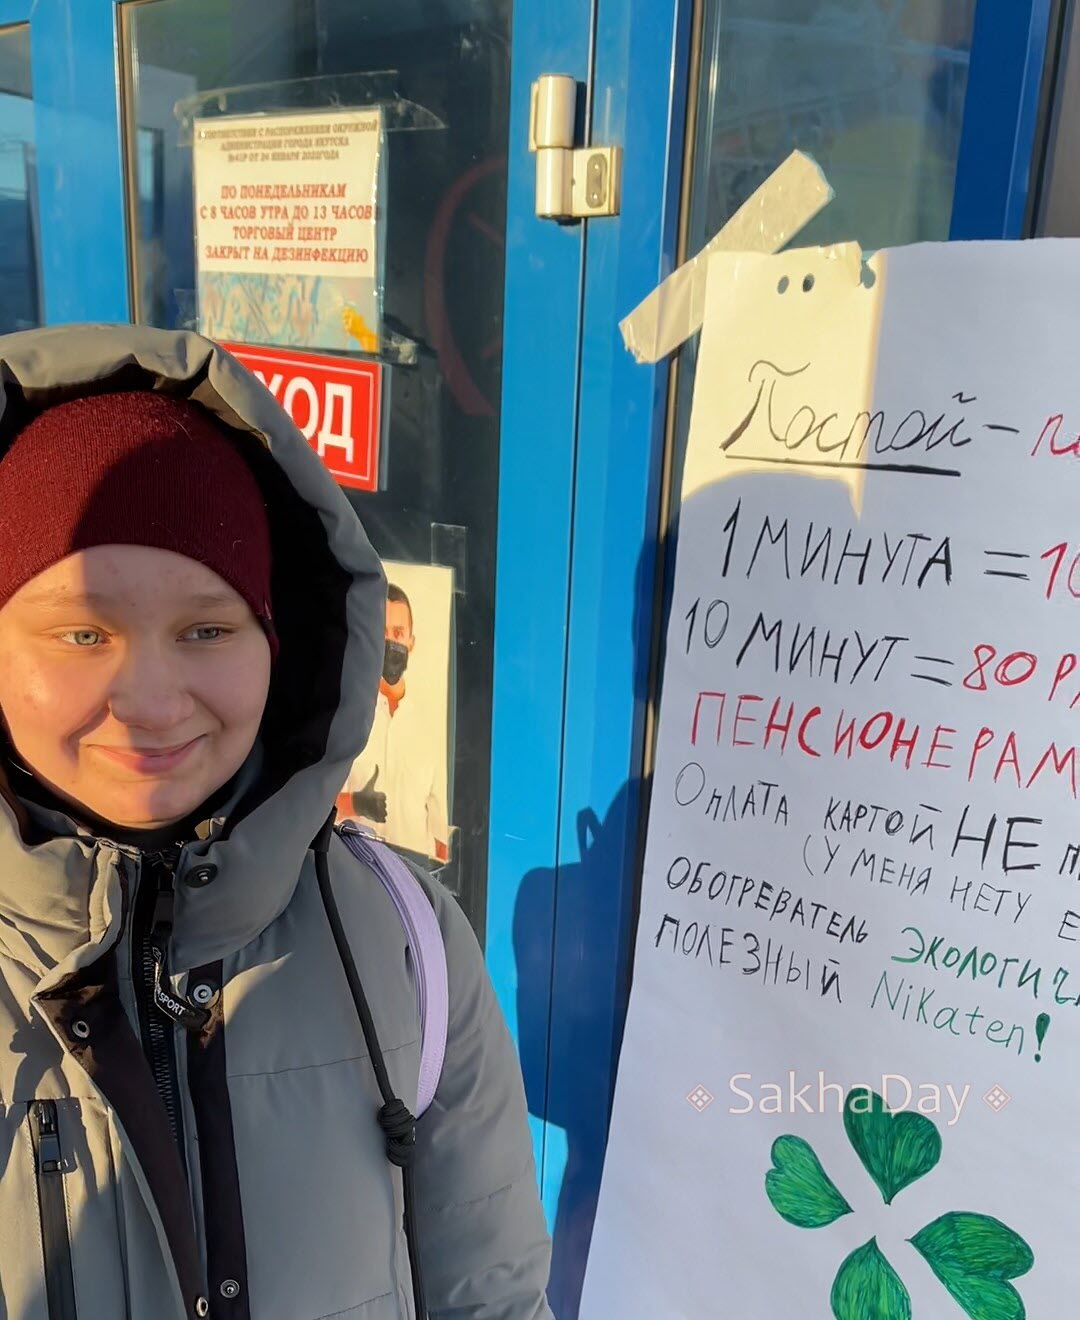 В СООТВЕТСТВИИ С РАСПОРЯЖЕНИЕМ ОКРУЖНОЙ
АДМИНИСТРАЦИИ ГОРОДА ЯКУТСКА
ОТ 24 ЯНВАРЯ 2022ГОДА
ПО ПОНЕДЕЛЬНИКАМ
С 8 ЧАСОВ УТРА ДО 13 ЧАСОВ
ТОРГОВЫЙ ЦЕНТР
ЗАКРЫТ НА ДЕЗИНФЕКЦИЮ
ХОД
Постой -
1 МИНУТА = 10
10 МИНУТ = 80 Р
ПЕНСИОНЕРАМ
ОПЛАТА КАРТОЙ НЕ П
(У МЕНЯ НЕТУ Е
ОБОГРЕВАТЕЛЬ ЭКОЛОГИЧ
ПОЛЕЗНЫЙ NiKaten!
SPORT
SakhaDay